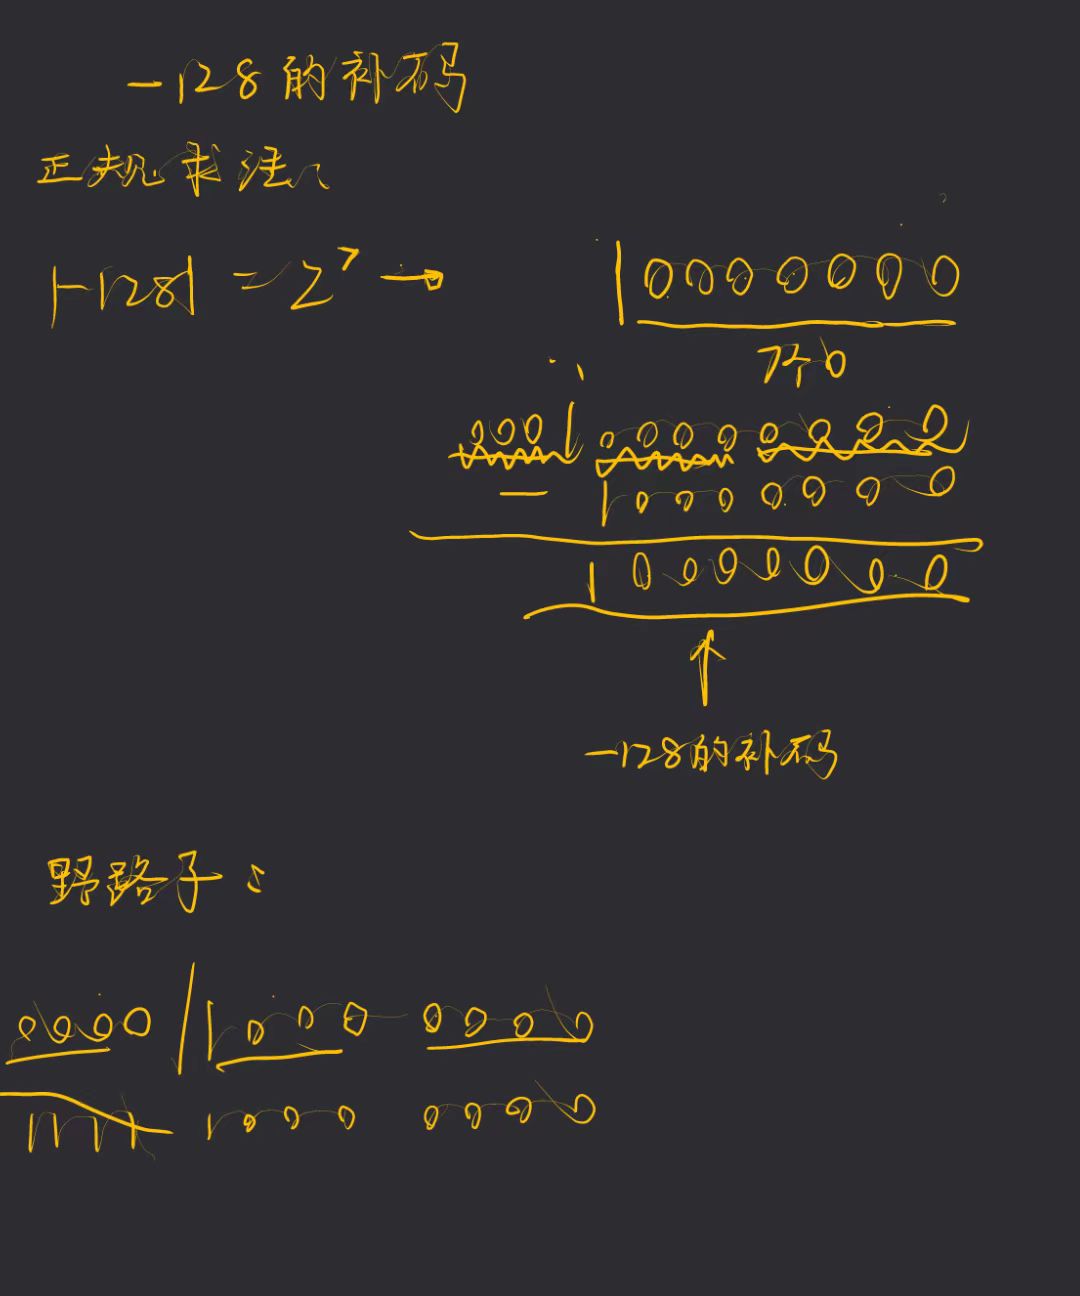 -128的补码
正规求法:
|-128| = 2^7 → 10000000
7个0
0001 0000 0000
- 1000 0000
10000000
↑
-128的补码
野路子:
0000 | 1000 0000
1111 1000 0000